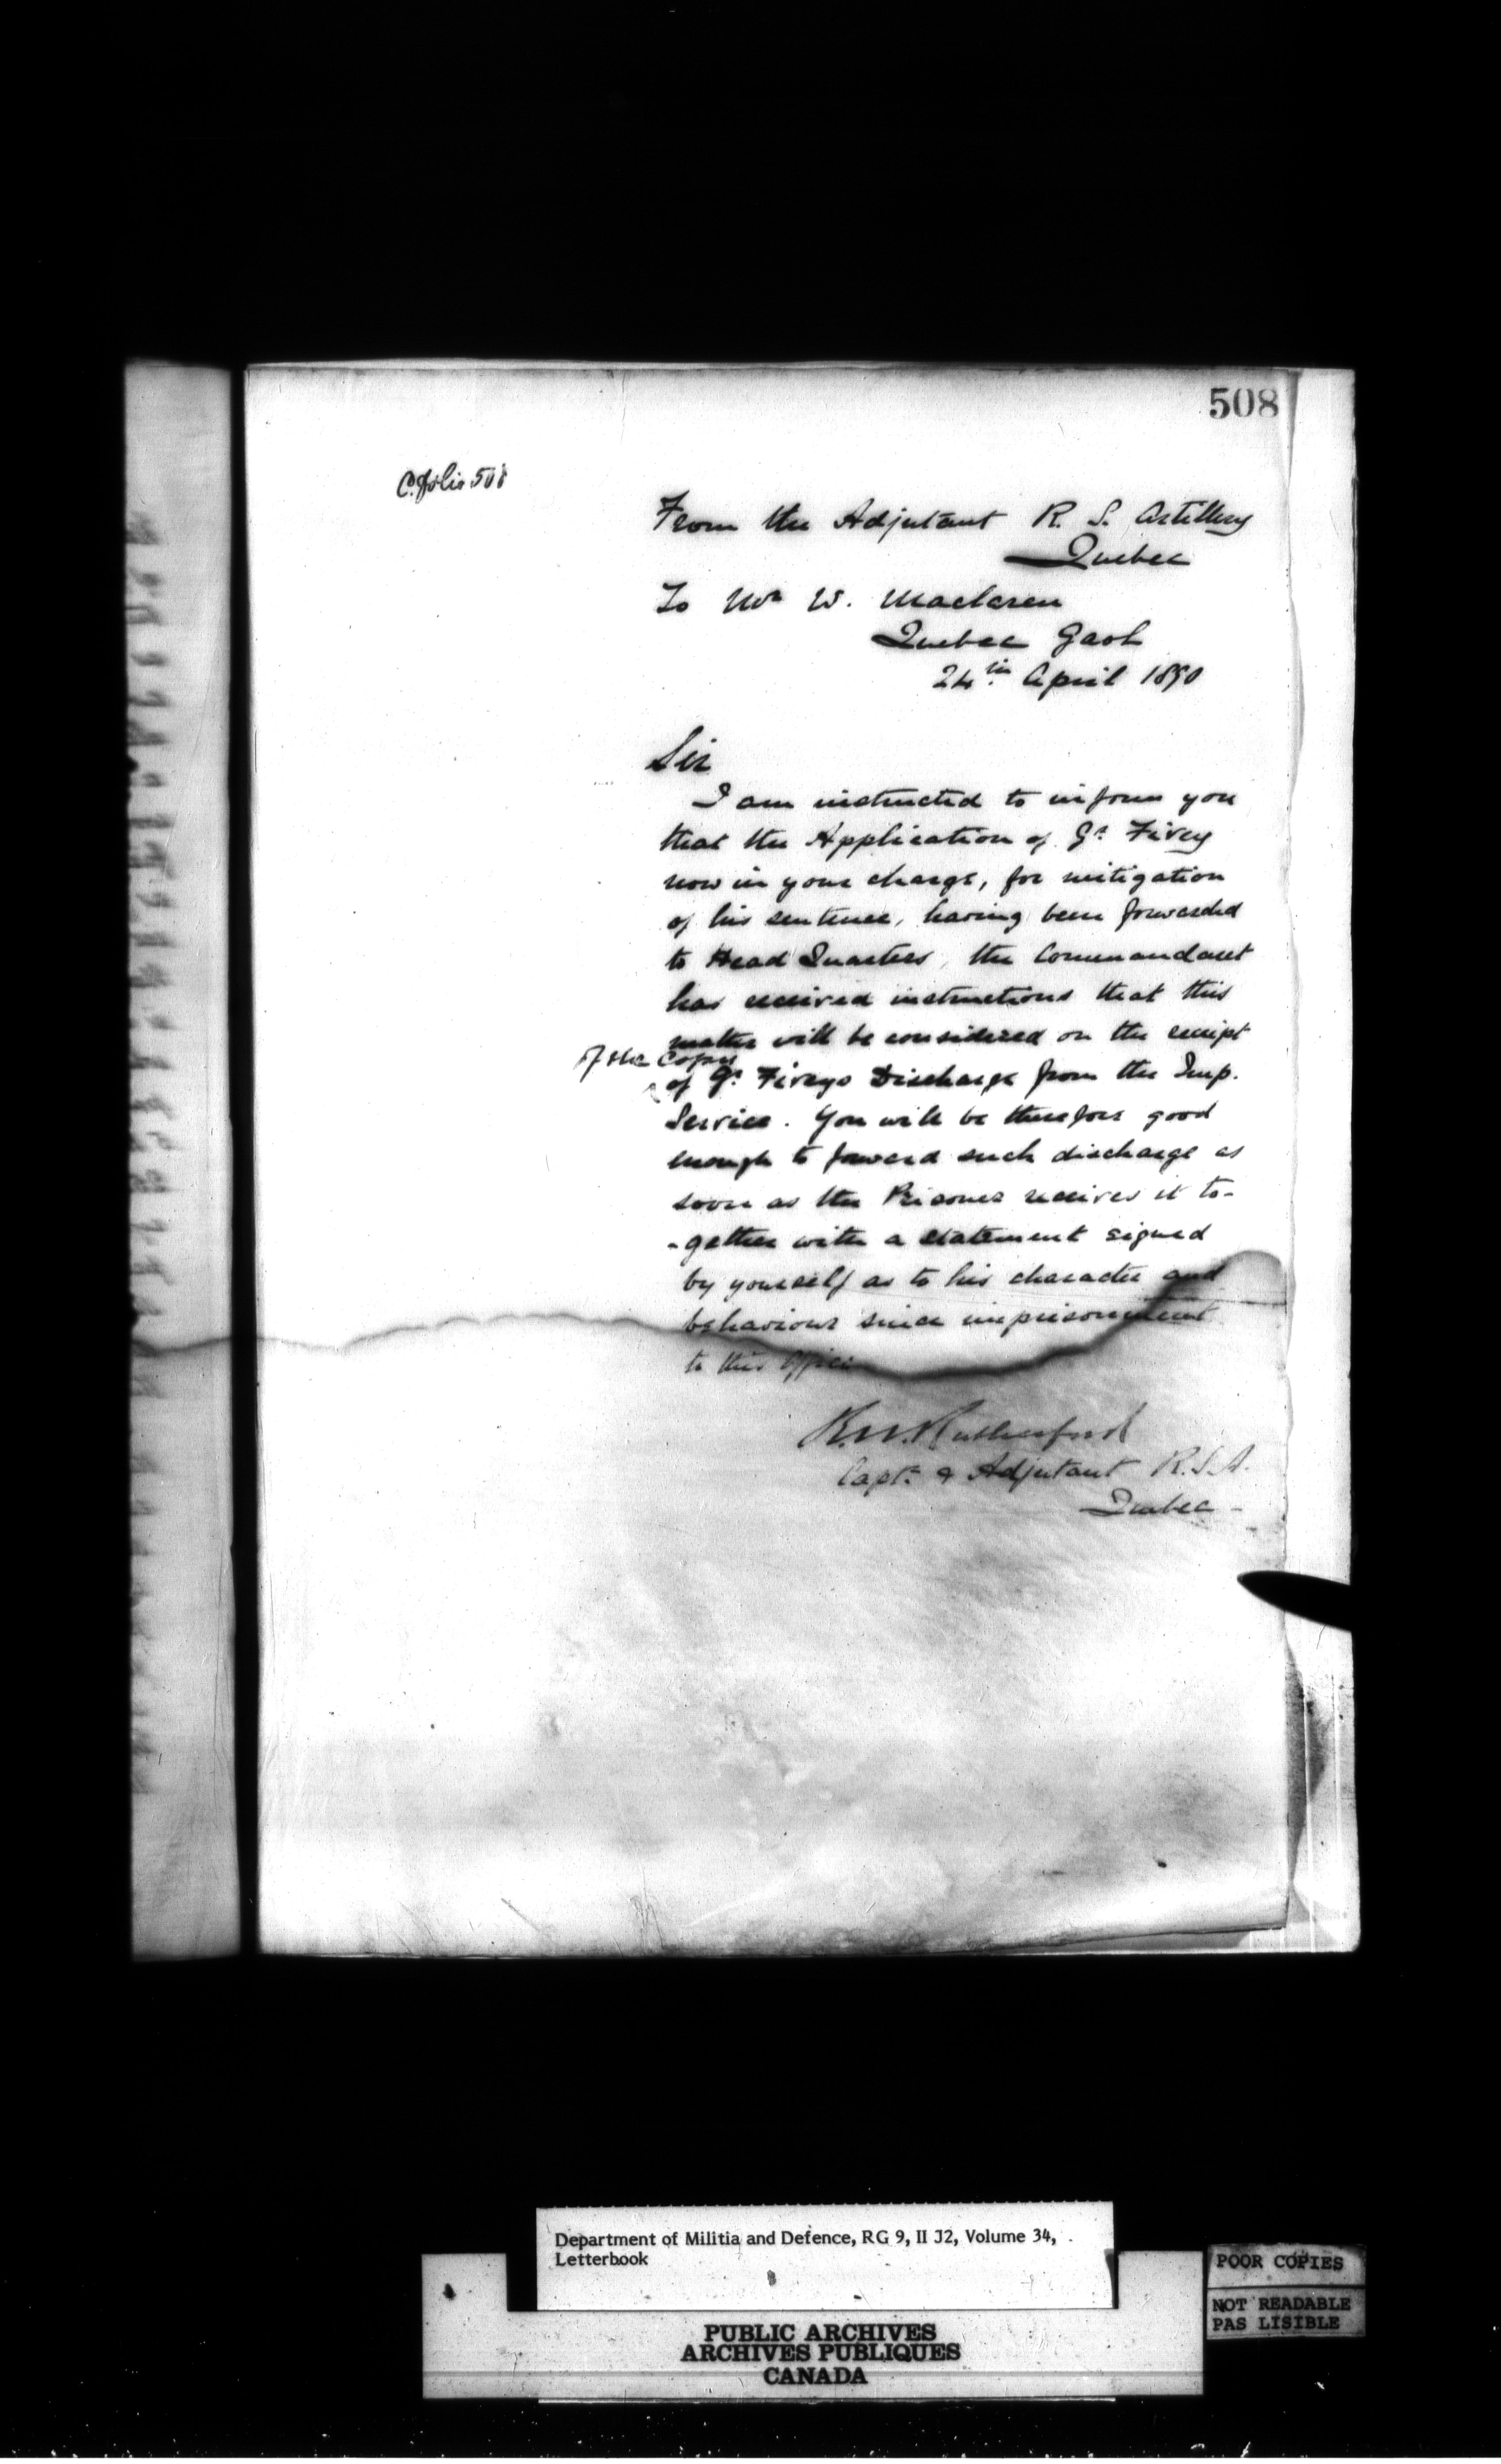 508
C. folio 508
From the Adjutant R. S. Artillery
Quebec
To Mr W. Maclaren
Quebec Gaol
24th April 1890
Sir
I am instructed to inform you
that the Application of Gr. Fivey
now in your charge, for mitigation
of his sentence, having been forwarded
to Head Quarters, the Commandant
has received instructions that this
matter will be considered on the receipt
of the Copy
of Gr. Fiveys Discharge from the Imp.
Service. You will be therefore good
enough to forward such discharge as
soon as the Prisoner receives it to-
-gether with a statement signed
by yourself as to his character and
behaviour since imprisonment
to this Office
Rutherford
Capt. & Adjutant R.S.A.
Quebec -
Department of Militia and Defence, RG 9, II J2, Volume 34,
Letterbook
POOR COPIES
NOT READABLE
PAS LISIBLE
PUBLIC ARCHIVES
ARCHIVES PUBLIQUES
CANADA